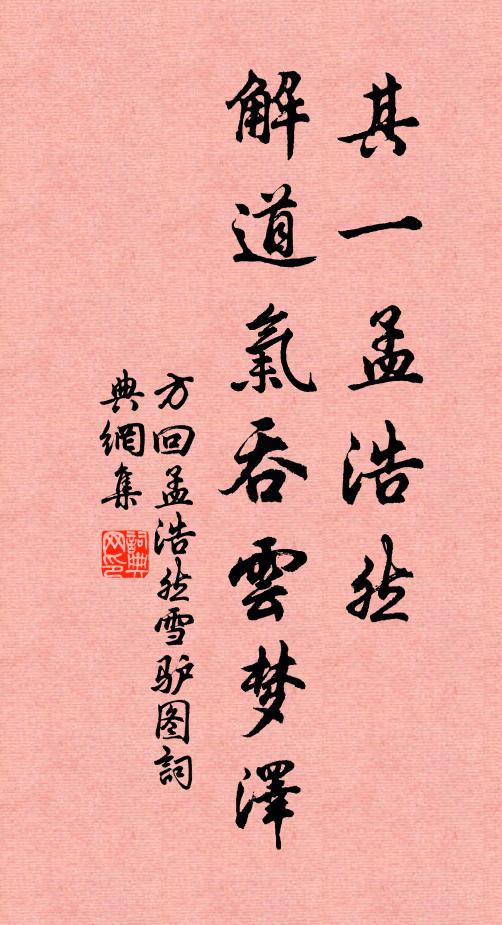 其一孟浩然
解道氣吞雲梦澤
方回孟浩然雪驴图詞
典網集
詞典
网印